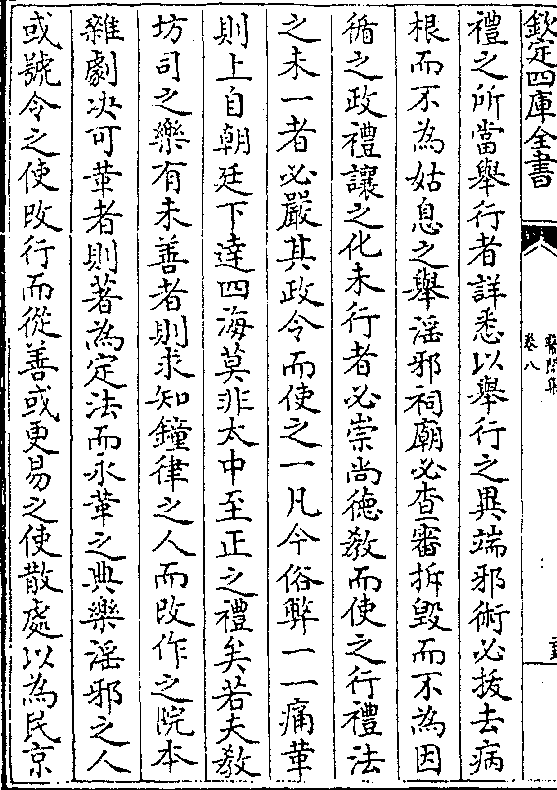 欽定四庫全書
卷八
禮之所當舉行者詳悉以舉行之異端邪術必拔去病
根而不為姑息之舉淫邪祠廟必查審拆毀而不為因
循之政禮讓之化未行者必崇尚德教而使之行禮法
之未一者必嚴其政令而使之一凡今俗弊一一痛革
則上自朝廷下達四海莫非太中至正之禮矣若夫教
坊司之樂有未善者則求知鐘律之人而改作之院本
雜劇决可革者則著為定法而永革之典樂淫邪之人
或號令之使改行而從善或更易之使散處以為民京